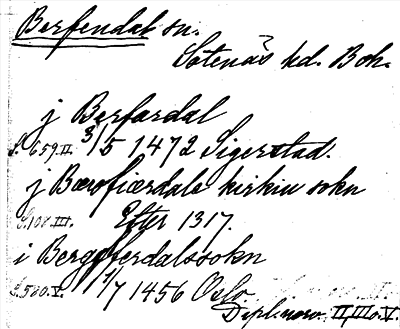 Berfendal sn.
Sotenäs hd. Boh.
j Berfærdal
S. 659. II. 3/5 1472 Sigerstad.
j Bærofiærdale kirkiu sokn
S. 108. III. Efter 1317.
i Bergfferdalssokn
S. 580. V. 1/7 1456 Oslo
Diplm. norv. II, III o. V.